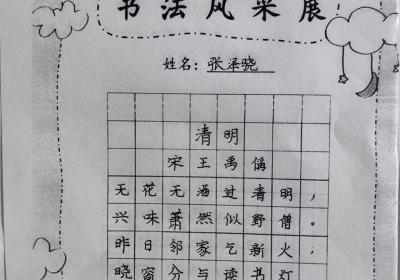 书法风采展
姓名：张泽晓
清明
宋 王禹偁
无花无酒过清明，
兴味萧然似野僧。
昨日邻家乞新火，
晓窗分与读书灯